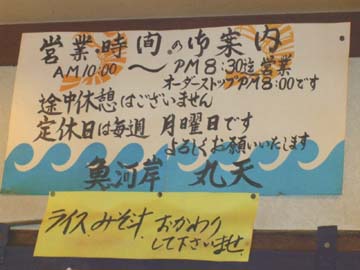 営業時間の御案内
AM10:00 〜 PM8:30迄営業
オーダーストップPM8:00です
途中休憩はございません
定休日は毎週 月曜日です
よろしくお願いいたします
魚河岸 丸天
ライス、みそ汁、おかわり
して下さいませ